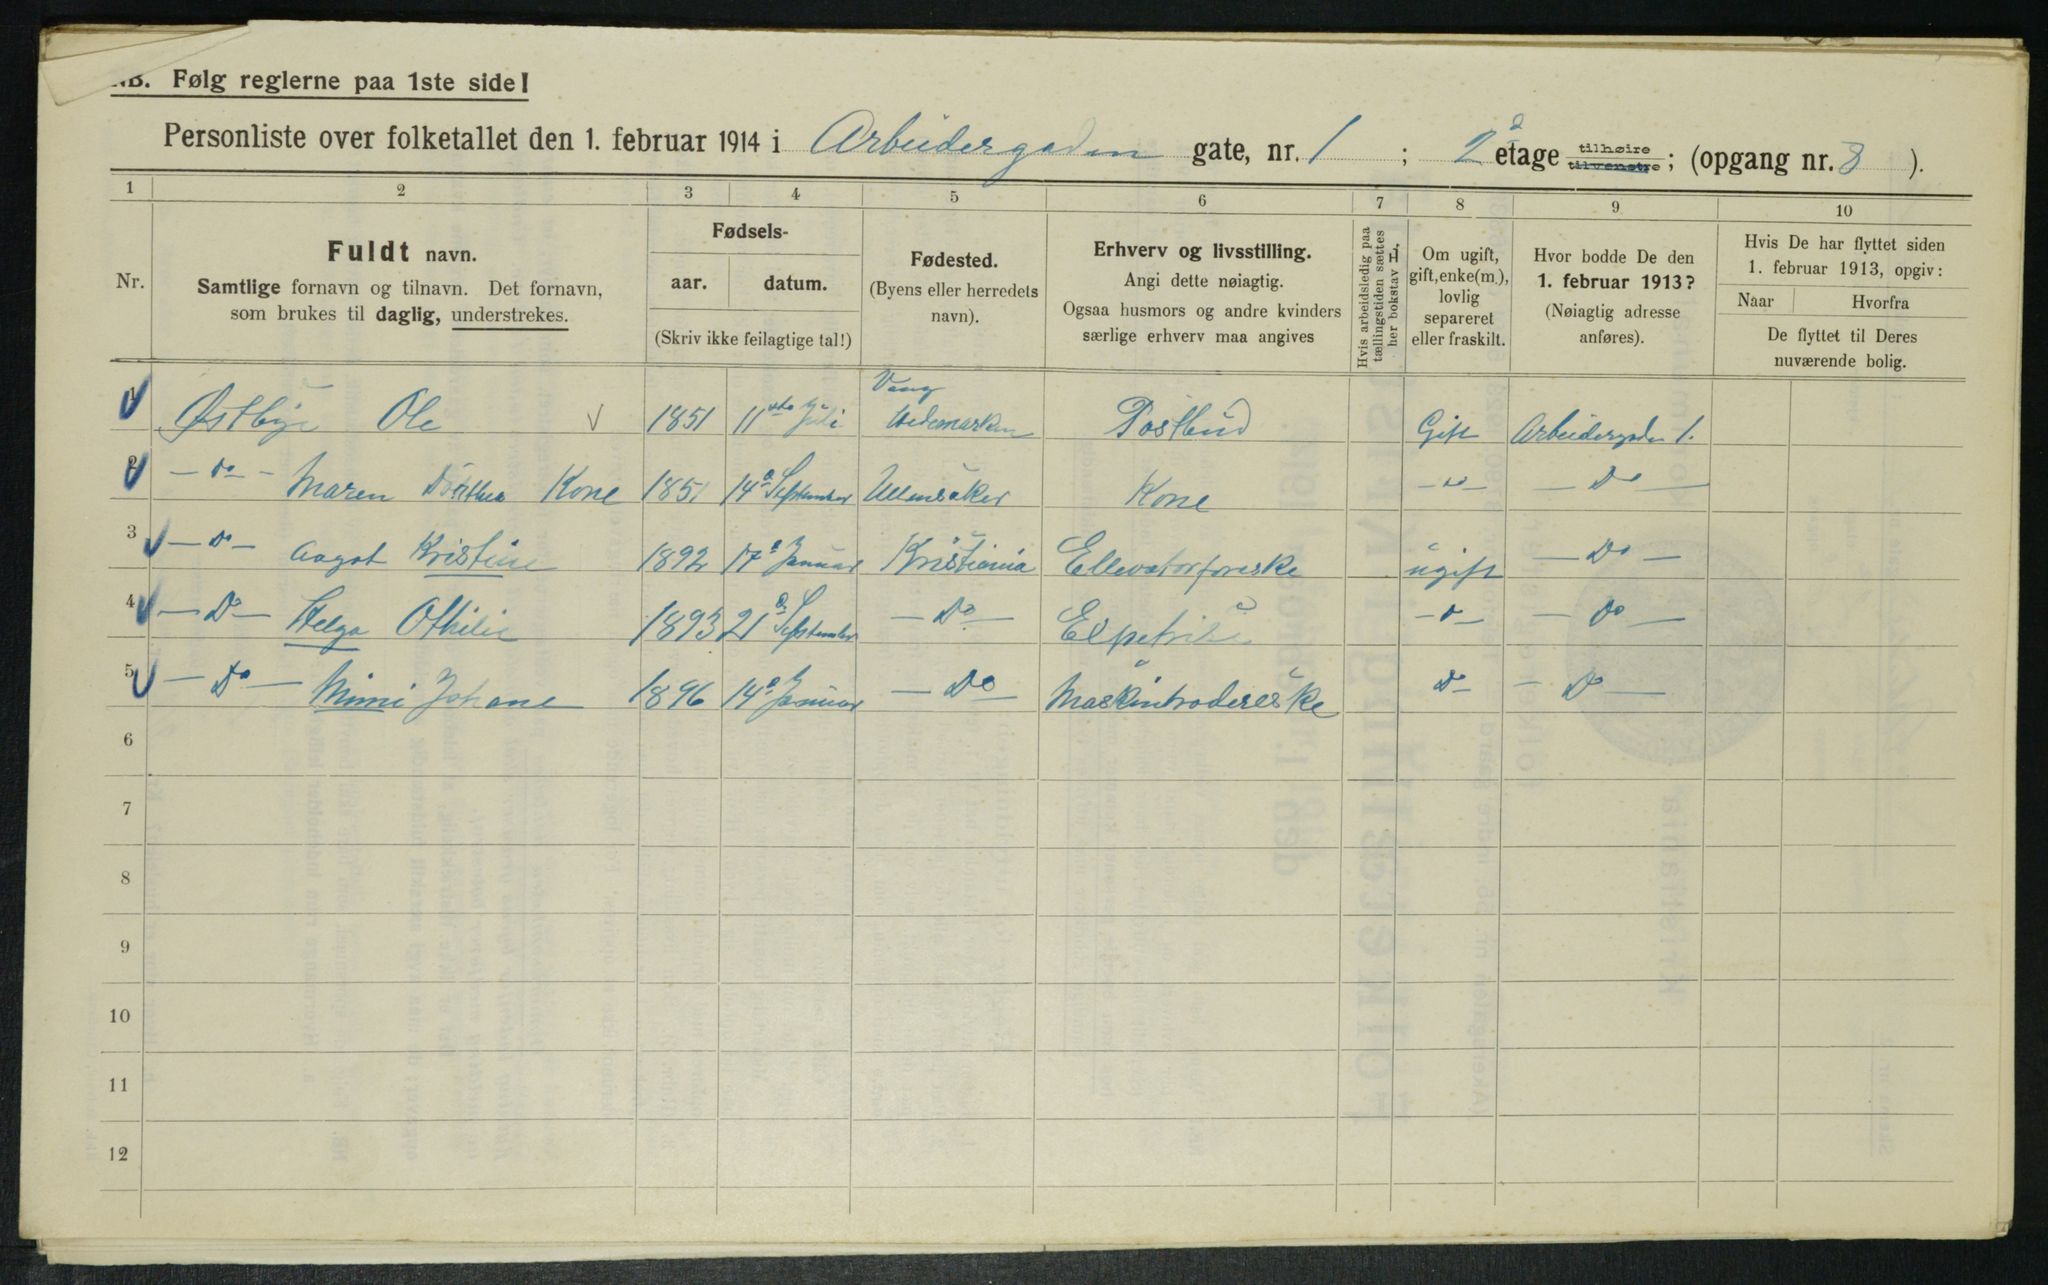 NB. Følg reglerne paa 1ste side!
Personliste over folketallet den 1. februar 1914 i Arbeidergaden gate, nr. 1 ; 2d etage tilhøire tilvenstre ; (opgang nr. 8 ).
1 2 3 4 5 6 7 8 9 10
Nr.
Fuldt navn.
Samtlige fornavn og tilnavn. Det fornavn,
som brukes til daglig, understrekes.
Fødsels-
aar. datum.
(Skriv ikke feilagtige tal!)
Fødested.
(Byens eller herredets
navn).
Erhverv og livsstilling.
Angi dette nøiagtig.
Ogsaa husmors og andre kvinders
særlige erhverv maa angives
Hvis arbeidsledig paa
tællingstiden sættes
her bokstav L.
Om ugift,
gift, enke(m.),
lovlig
separeret
eller fraskilt.
Hvor bodde De den
1. februar 1913?
(Nøiagtig adresse
anføres).
Hvis De har flyttet siden
1. februar 1913, opgiv:
Naar Hvorfra
De flyttet til Deres
nuværende bolig.
1 Østbye Ole 1851 11te Juli Vang Hedemarken Postbud Gift Arbeidergaden 1.
2 — do — Maren Dorthea Kone 1851 14d September Ullensaker Kone — " — — Do —
3 — do — Aagot Kristine 1892 17d Januar Kristiania Ellevatorføreske ugift — Do —
4 — Do — Helga Othilie 1893 21d September — Do — — d — — Do —
5 — Do — Mimi Johane 1896 14d Januar — Do — Maskinbrodereske D — — Do —
6
7
8
9
10
11
12